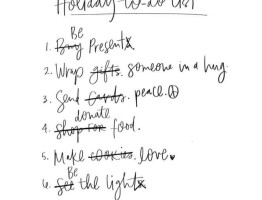 Holiday to-do list
Be
1. Buy Presents
2. Wrap gifts. someone in a hug.
3. Send cards. peace.
donate
4. shop for food.
5. Make cookies. love.
Be
6. See the lights